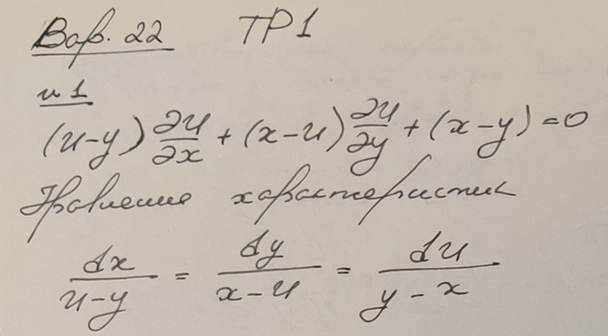 Вар. 22 ТР1
н 1
(u-y) ∂u/∂x + (x-u) ∂u/∂y + (x-y) = 0
Уравнение характеристик
dx/(u-y) = dy/(x-u) = du/(y-x)